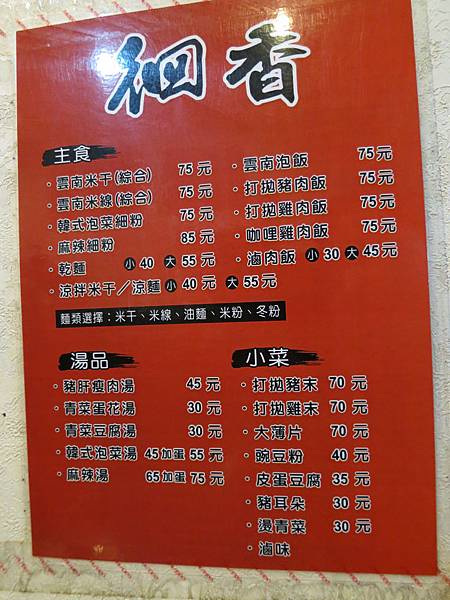 細香
主食
・雲南米干(綜合) 75元
・雲南米線(綜合) 75元
・韓式泡菜細粉 75元
・麻辣細粉 85元
・乾麵 小40 大55元
・涼拌米干／涼麵 小40元 大55元
・雲南泡飯 75元
・打拋豬肉飯 75元
・打拋雞肉飯 75元
・咖哩雞肉飯 75元
・滷肉飯 小30 大45元
麵類選擇：米干、米線、油麵、米粉、冬粉
湯品
・豬肝瘦肉湯 45元
・青菜蛋花湯 30元
・青菜豆腐湯 30元
・韓式泡菜湯 45加蛋55元
・麻辣湯 65加蛋75元
小菜
・打拋豬末 70元
・打拋雞末 70元
・大薄片 70元
・豌豆粉 40元
・皮蛋豆腐 35元
・豬耳朵 30元
・燙青菜 30元
・滷味